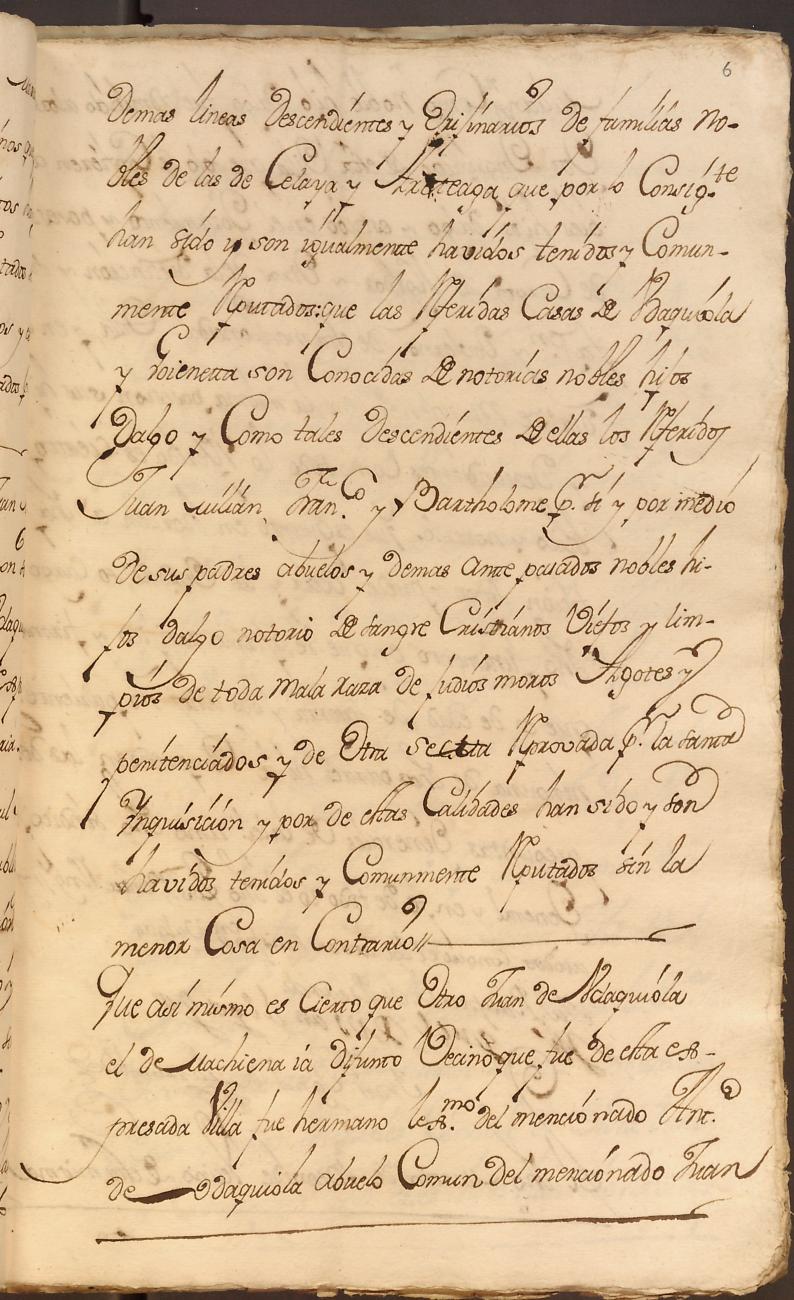 6
Demas lineas Descendientes y Orijinarios de familias no-
bles de las de Celaya y Arteaga que por lo Consig.te
han sido y son igualmente havidos tenidos y Comun-
mente Rputados: que las Rferidas Casas de Odaquiola
y Goienetta son Conocidas de notorias nobles hijos
Dalgo y Como tales Descendientes de ellas los Rferidos
Juan Julian, Fran.co y Bartholome p.r si y por medio
de sus padres abuelos y demas ante pasados nobles hi-
jos dalgo notorio de sangre Cristianos Viejos y lim-
pios de toda mala raza de judios moros Agotes y
penitenciados y de Otra secta Rprovada p.r la santa
Ynquisicion y por de esttas Calidades han sido y son
havidos tenidos y Comunmente Rputados sin la
menor Cosa en Contrario//
Que asi mismo es Cierto que Otro Juan de Odaquiola
el de Machiena ia difunto Vecino que fue de esta es-
presada Villa fue hermano lex.mo del mencionado Ant.o
de Odaquiola abuelo Comun del mencionado Juan